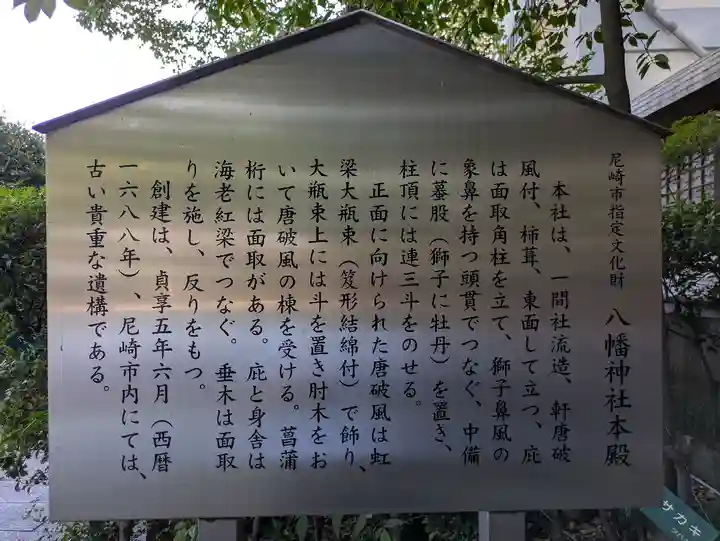 尼崎市指定文化財　八幡神社本殿
本社は、一間社流造、軒唐破
風付、柿葺、東面して立つ、庇
は面取角柱を立て、獅子鼻風の
象鼻を持つ頭貫でつなぐ、中備
に蟇股（獅子に牡丹）を置き、
柱頂には連三斗をのせる。
正面に向けられた唐破風は虹
梁大瓶束（笈形結綿付）で飾り、
大瓶束上には斗を置き肘木をお
いて唐破風の棟を受ける。菖蒲
桁には面取がある。庇と身舎は
海老紅梁でつなぐ。垂木は面取
りを施し、反りをもつ。
創建は、貞享五年六月（西暦
一六八八年）、尼崎市内にては、
古い貴重な遺構である。
サカキ